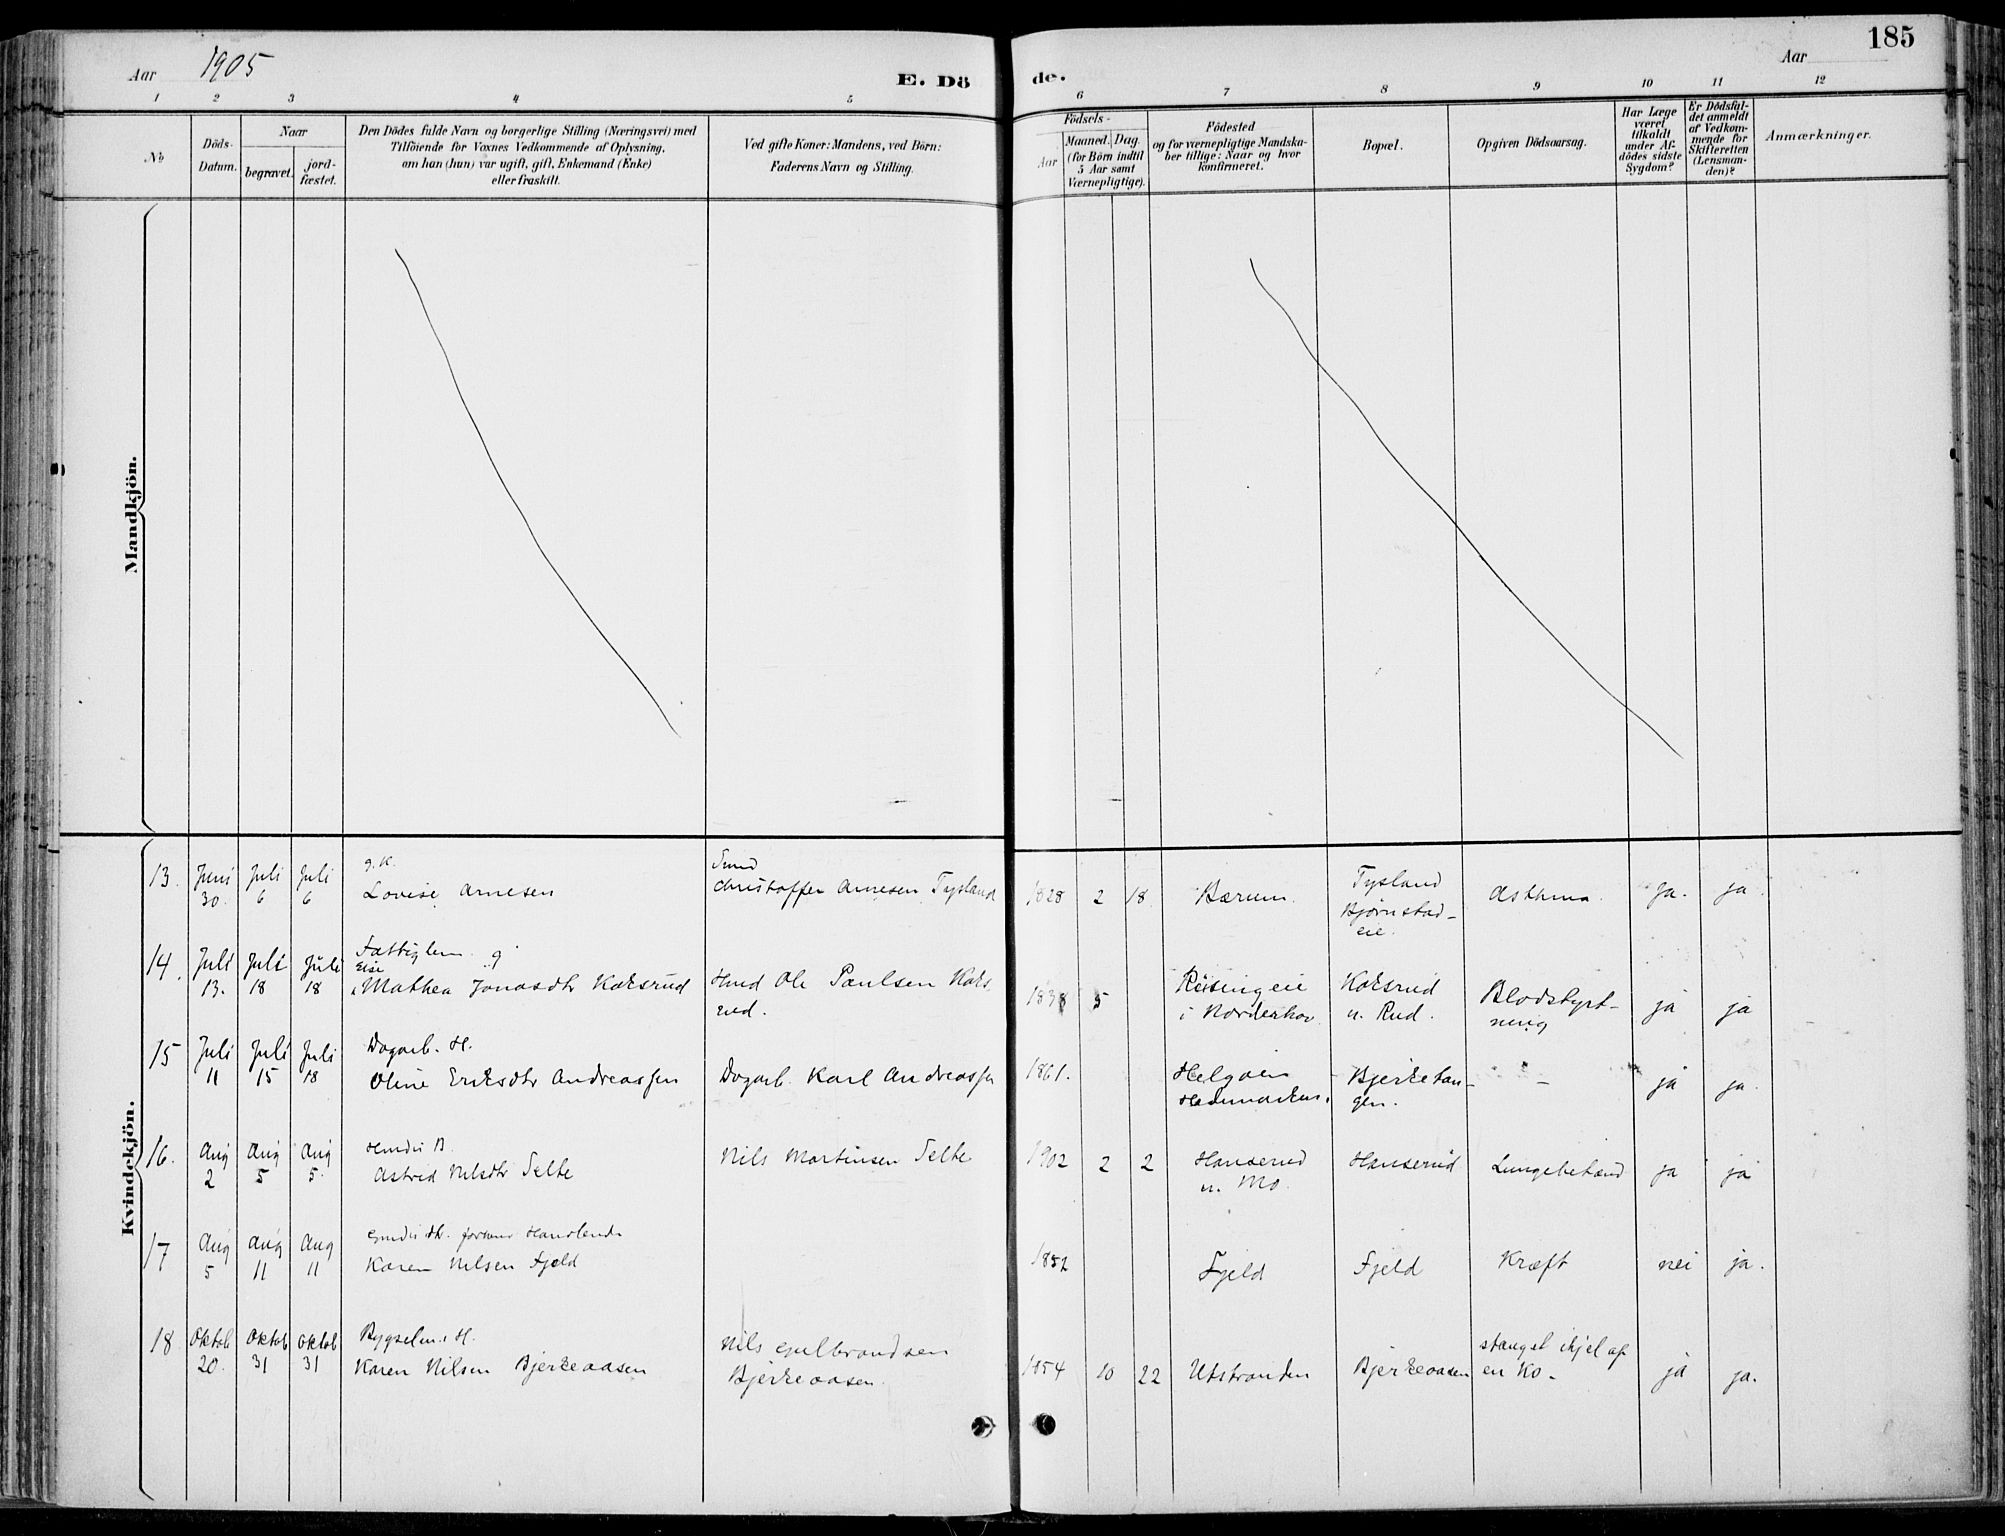 Aar 1905
E. Dö
de.
Aar
185
1 2 3 4 5 6 7 8 9 10 11 12
No
Döds-
Datum.
Naar
begravet.
jord-
fæstet.
Den Dödes fulde Navn og borgerlige Stilling (Næringsvei) med
Tilföiende for Voxnes Vedkommende af Oplysning,
om han (hun) var ugift, gift, Enkemand (Enke)
eller fraskilt.
Ved gifte Koner: Mandens, ved Börn:
Faderens Navn og Stilling.
Födsels-
Aar
Maaned. Dag.
(for Börn indtil
5 Aar samt
Værnepligtige).
Födested
og for værnepligtige Mandska-
ber tillige: Naar og hvor
konfirmeret.
Bopæl.
Opgiven Dödsaarsag.
Har Læge
været
tilkaldt
under Af-
dödes sidste
Sygdom?
Er Dödsfal-
det anmeldt
af Vedkom-
mende for
Skifteretten
(Lensman-
den)?
Anmærkninger.
Mandkjön.
Kvindekjön.
13. Juni 30. Juli 6 Juli 6
g. K.
Lovise Arnesen
Christoffer Arnesen Tysland
1828 2 18 Bærum.
Tysland
Bjørnstad-
eie.
Asthma. ja. ja.
14. Juli 13. Juli 18 Juli 18
Fattiglem. g
Mathea Jonasdtr Koksrud
Ole Paulsen Koks
rud.
5
i Norderhov
Koksrud
u. Rud.
Blodstyrt-
ning
ja ja
15 Juli 11 Juli 15 Juli 18
Dagarb. H.
Oline Eriksdtr Andreassen
Dagarb. Karl Andreassen
1861.
Helgøen
Hedemarken.
Bjerketan-
gen.
- " - ja ja.
16. Aug 2 Aug 5 Aug 5.
B.
Astrid Nilsdtr Telte
Nils Martinsen Telte
1902 2 2
Hanserud
u. Mo.
Hanserud
Lungebetænd ja ja
17 Aug 5 Aug 11 Aug 11
Karen Nilsen Fjeld
1852 Fjeld Fjeld Kræft nei ja.
18 Oktob 20. Oktob 31 Oktob 31
Bygselm. H.
Karen Nilsen Bjerkeaasen
Nils Gulbrandsen
Bjerkeaasen.
1854 10 22 Utstranden Bjerkeaasen
stanget ihjel af
en Ko. ja ja.